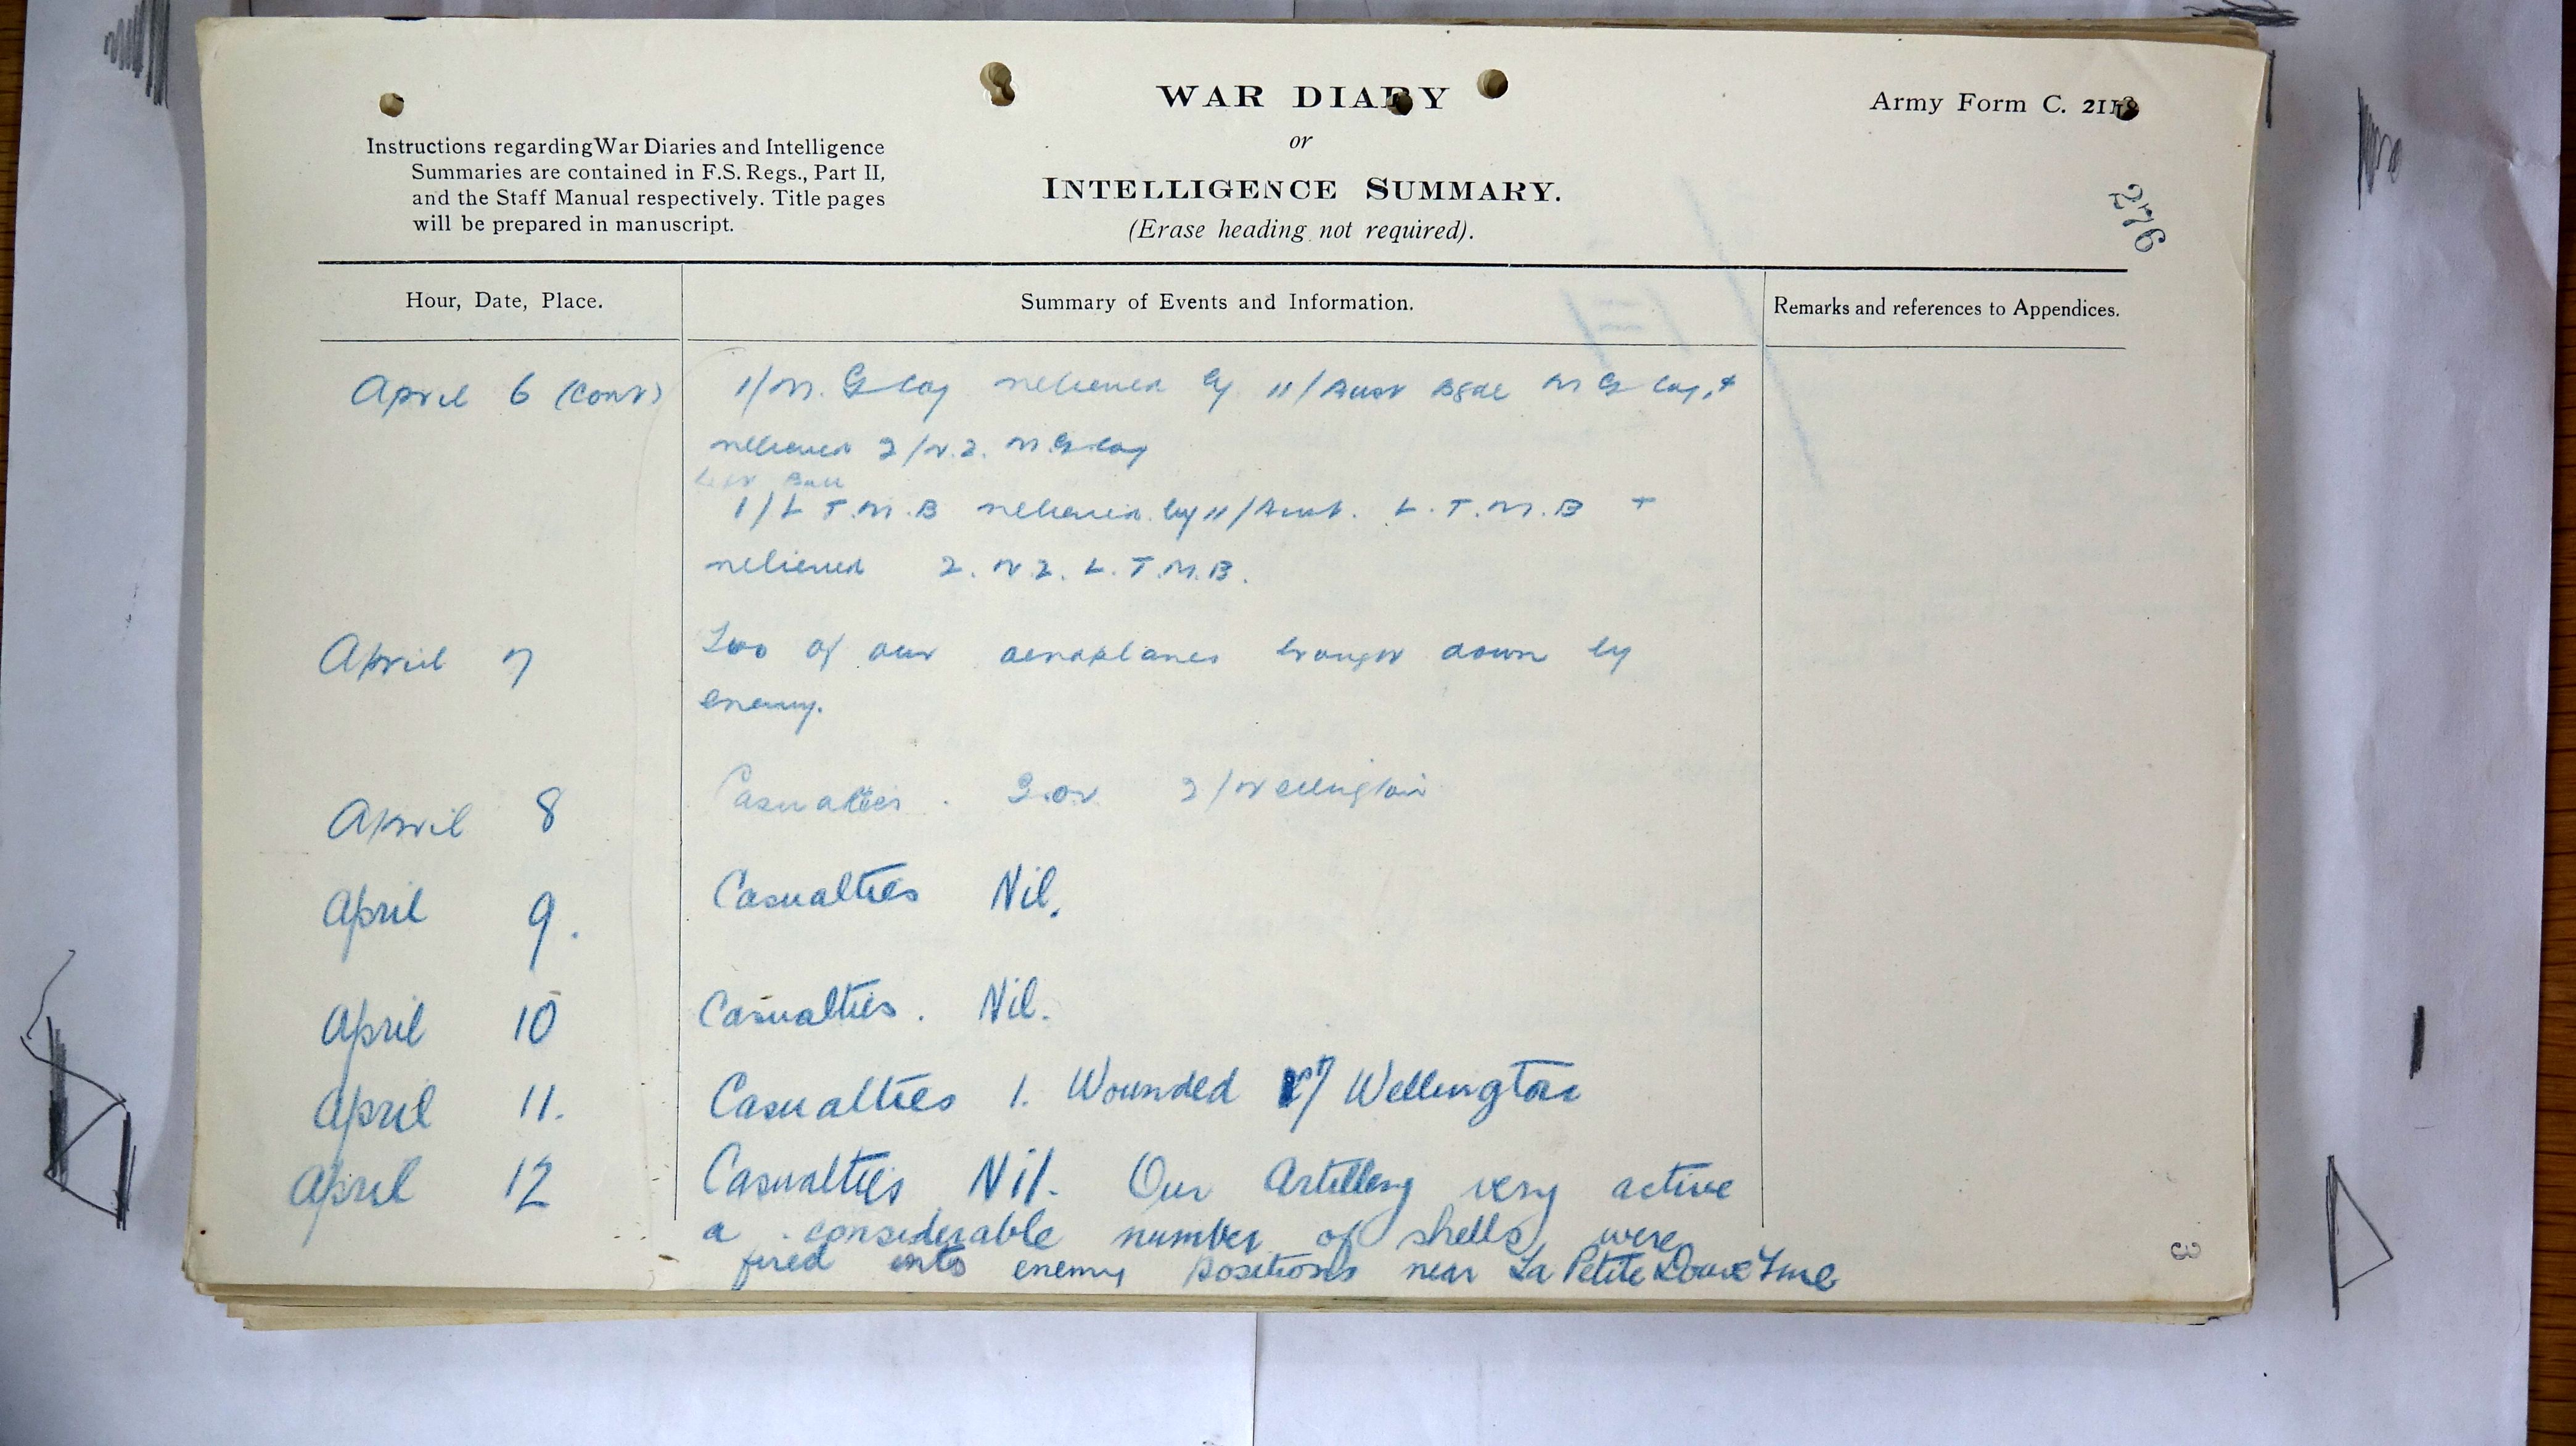 WAR DIARY
or
INTELLIGENCE SUMMARY.
(Erase heading not required).
Army Form C. 2118
276
Instructions regarding War Diaries and Intelligence
Summaries are contained in F.S. Regs., Part II,
and the Staff Manual respectively. Title pages
will be prepared in manuscript.
Hour, Date, Place.
Summary of Events and Information.
Remarks and references to Appendices.
April 6 (cont)
1/M. G Coy relieved by 11/Aust Bgde M G Coy, +
relieved 2/N.Z. M.G. Coy
1/L T.M.B relieved by 11/Aust. L.T.M.B +
relieved 2. N Z. L.T.M.B.
April 7
Two of our aeroplanes brought down by
enemy.
April 8
Casualties. 2/Wellington
April 9.
Casualties Nil.
April 10
Casualties. Nil.
April 11.
Casualties 1. Wounded Wellington
April 12
Casualties Nil. Our Artillery very active
a considerable number of shells were
fired into enemy positions near La Petite Douve
3